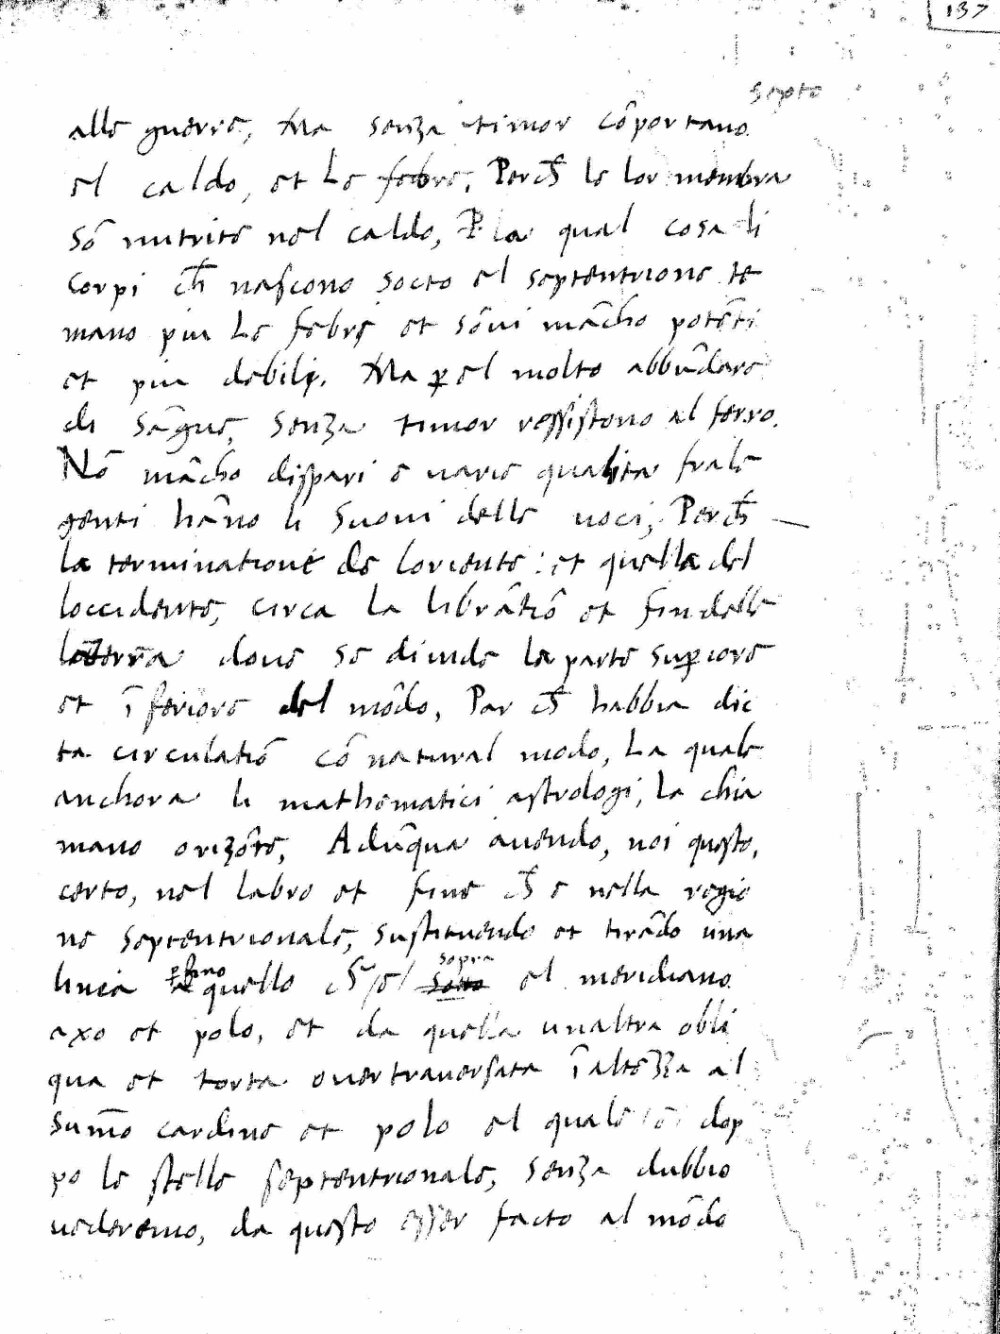 137
Septo
alle guerre, Ma senza timor cõportano
el caldo, et Le febre, Perch̃ le lor membra
Sõ nutrite nel caldo, P la qual cosa li
Corpi ch̃ nascono socto el septentrione te
mano piu Le febre et sõni mãcho potẽti
et piu debili. Ma p̱ el molto abbũdare
di Sãgue, Senza timor ressistono al ferro.
Nõ mãcho dispari e uarie qualita frale
genti hãno li Suoni delle uoci, Perch̃
la terminatione de Loriente: et quella del
loccidente, circa La librãtiõ et fin delle
la terra doue se diuide la parte sup̱iore
et ĩferiore del mõdo, Par ch̃ habbia dic
ta circulatiõ cõ natural modo, La quale
anchora li mathematici astrologi, la chia
mano orizõte, Adũqua auendo, noi questo,
certo, nel labro et fine ch̃ e nella regio
ne septentrionale, sustituendo et tirãdo una
sopra
linea p̱ fino quello ch̃ sotto el meridiano
axo et polo, et da quella unaltra obli
qua et torta ouer trauersata ĩ altezza al
Sum̃o cardine et polo el quale dop
po le stelle septentrionale, senza dubbio
uederemo, da questo esser facto al mõdo